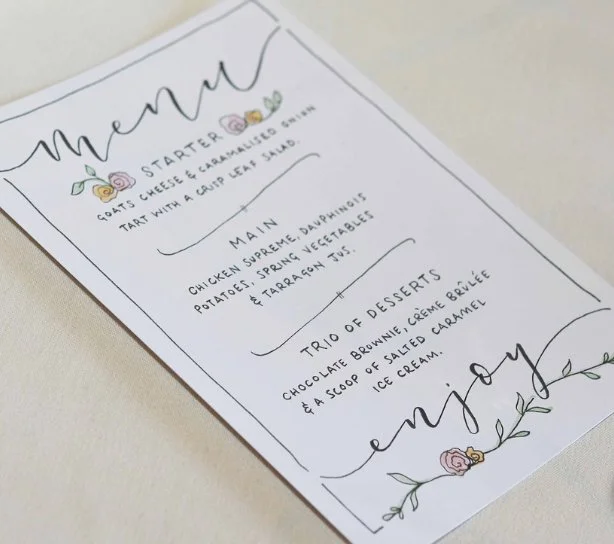 menu
STARTER
GOATS CHEESE & CARAMALISED ONION
TART WITH A CRISP LEAF SALAD.
MAIN
CHICKEN SUPREME, DAUPHINOIS
POTATOES, SPRING VEGETABLES
& TARRAGON JUS.
TRIO OF DESSERTS
CHOCOLATE BROWNIE, CRÈME BRÛLÉE
& A SCOOP OF SALTED CARAMEL
ICE CREAM.
enjoy